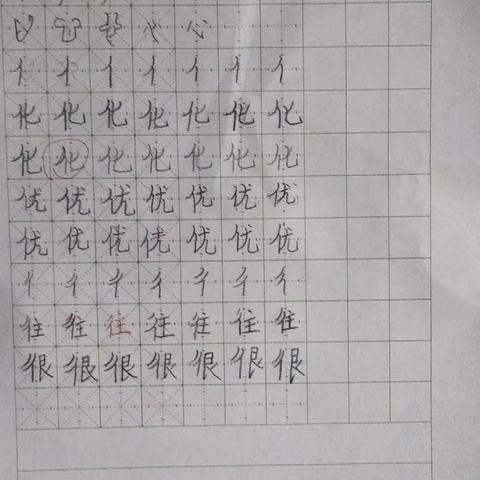 心 心
亻 亻 亻 亻 亻 亻 亻
化 化 化 化 化 化 化
化 化 化 化 化 化 化
优 优 优 优 优 优 优
优 优 优 优 优 优 优
彳 彳 彳 彳 彳 彳 彳
往 往 往 往 往 往 往
很 很 很 很 很 很 很